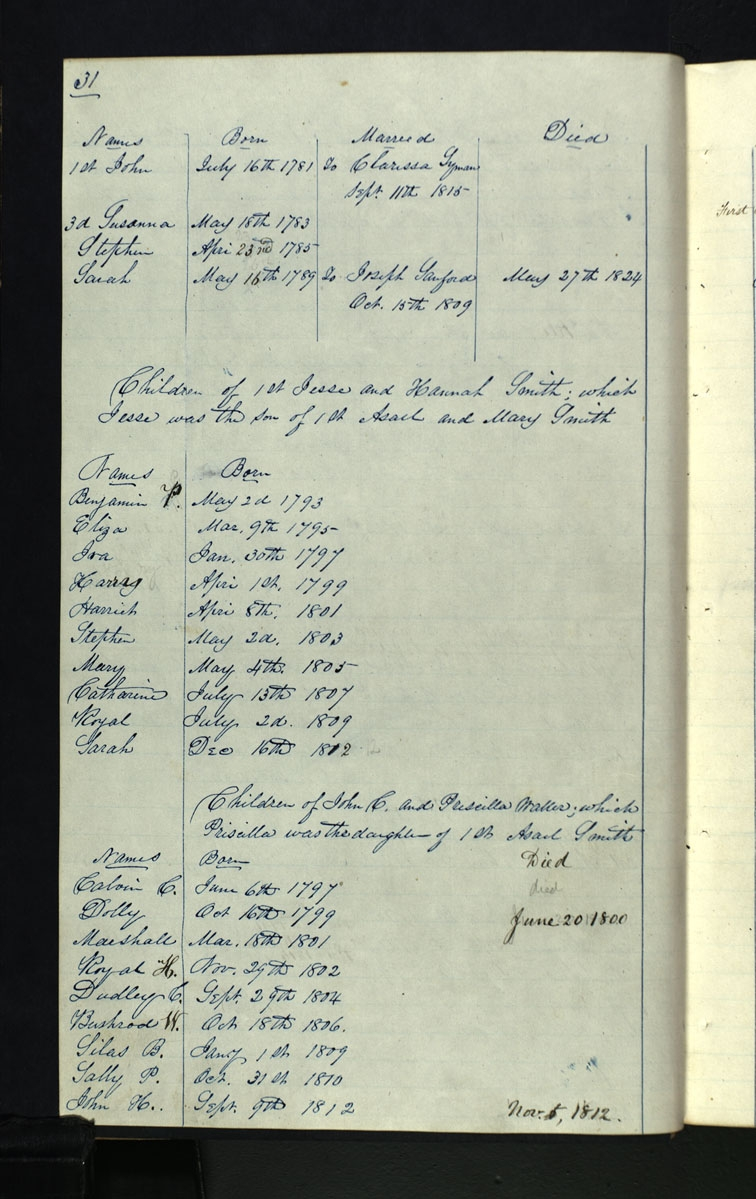 31
Names Born Married Died
1st John July 16th 1781 To Clarissa Lyman
Sept. 11th 1815
3d Susanna May 18th 1783
Stephen Apri 23rd 1785
Sarah May 16th 1789 To Joseph Sanford May 27th 1824
Oct. 15th 1809
First
Children of 1st Jesse and Hannah Smith; which
Jesse was the son of 1st Asael and Mary Smith
Names Born
Benjamin P. May 2d 1793
Eliza Mar. 9th 1795
Ira Jan. 30th 1797
Harry Apri 1st. 1799
Harriet Apri 8th. 1801
Stephen May 2d. 1803
Mary May 4th. 1805
Catharine July 13th 1807
Royal July 2d. 1809
Sarah Dec 16th 1812
Children of John C. and Priscilla Waller; which
Priscilla was the daughter of 1st Asael Smith
Names Born Died
Calvin C. June 6th 1797 died
Dolly Oct 16th 1799 June 20 1800
Marshall Mar. 18th 1801
Royal H. Nov. 29th 1802
Dudley C. Sept. 29th 1804
Bushrod W. Oct 18th 1806.
Silas B. Jany 1st 1809
Sally P. Oct. 31st 1810
John H. Sept. 9th 1812 Nov. 5, 1812.